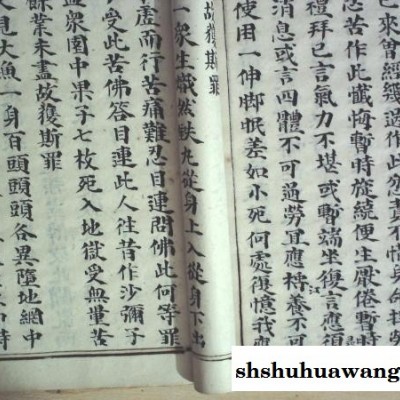 已來曾經幾
苦作此懺悔暫時旋繞便生厭倦暫時
禮拜已言氣力不堪或暫端坐復言應須
消息或言四體不可過勞宜應將養不可
使用一伸脚眠差如小死何處復憶我應
故獲斯罪
一衆生熾然鉄丸從身上入從身下出
虛而行苦痛難忍目連問佛此何等罪
受此苦佛答目連此人往昔作沙彌子
盗衆園中果子七枚死入地獄受無量苦
餘業未盡故獲斯罪
見大魚一身百頭頭頭各異墮地網中
shshuhuawang